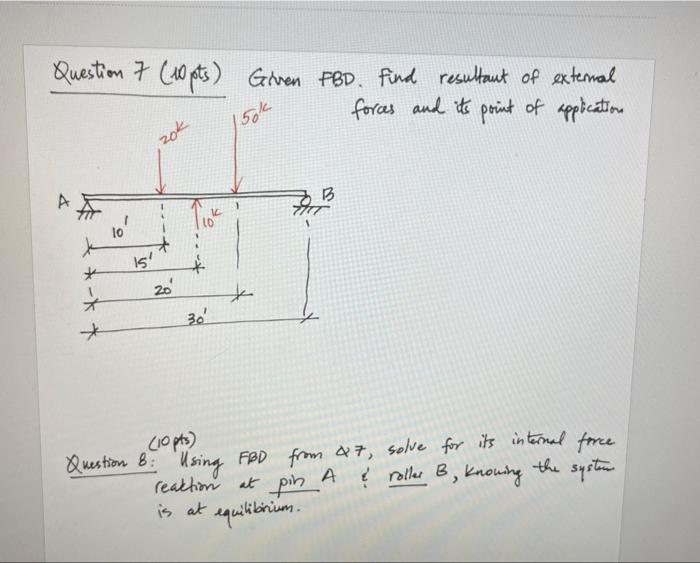 Question 7 (10 pts) Given FBD. Find resultant of external
forces and its point of application
20k
50k
A
B
10k
10'
15'
20'
30'
(10 pts)
Question 8: Using FBD from Q7, solve for its internal force
reaction at pin A & roller B, knowing the system
is at equilibrium.